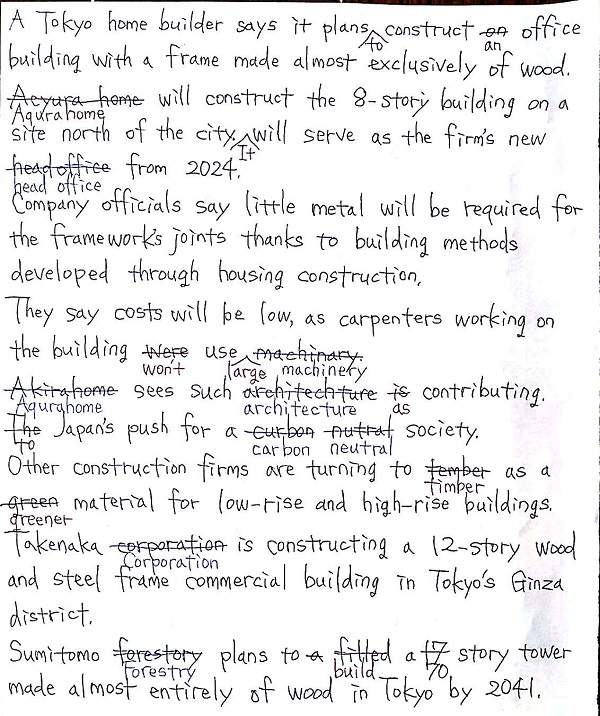 A Tokyo home builder says it plans construct on office
to an
building with a frame made almost exclusively of wood.
Acyura home will construct the 8-story building on a
Aqurahome
site north of the city. will serve as the firm's new
It
head office from 2024.
head office
Company officials say little metal will be required for
the framework's joints thanks to building methods
developed through housing construction.
They say costs will be low, as carpenters working on
the building were use machinary.
won't large machinery
Akirahome sees such architechture is contributing.
Aqurahome architecture as
The Japan's push for a curbon nutral society.
to carbon neutral
Other construction firms are turning to tember as a
timber
green material for low-rise and high-rise buildings.
greener
Takenaka corporation is constructing a 12-story wood
Corporation
and steel frame commercial building in Tokyo's Ginza
district.
Sumitomo forestory plans to a filled a 17 story tower
Forestry build 70
made almost entirely of wood in Tokyo by 2041.